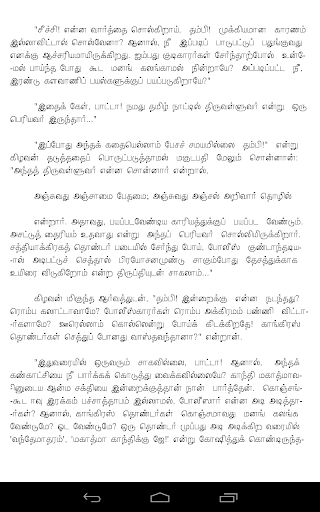 "சீச்சி! என்ன வார்த்தை சொல்கிறாய், தம்பி! முக்கியமான காரணம்
இல்லாவிட்டால் சொல்வேனா? ஆனால், நீ இப்படிப் பாடுபட்டுப் பதுங்குவது
எனக்கு ஆச்சரியமாயிருக்கிறது. ஐம்பது குடிகாரர்கள் சேர்ந்தாற்போல் உன்மே-
-மல் பாய்ந்த போது கூட மனங் கலங்காமல் நின்றாயே? அப்படிப்பட்ட நீ,
இரண்டு களவாணிப் பயல்களுக்குப் பயப்படுகிறாயே?"
"இதைக் கேள், பாட்டா! நமது தமிழ் நாட்டில் திருவள்ளுவர் என்று ஒரு
பெரியவர் இருந்தார்..."
"இப்போது அந்தக் கதையெல்லாம் பேசச் சமயமில்லை தம்பி!" என்று
கிழவன் தடுத்ததைப் பொருட்படுத்தாமல் மகுடபதி மேலும் சொன்னான்:
"அந்தத் திருவள்ளுவர் என்ன சொன்னார் என்றால்,
அஞ்சுவது அஞ்சாமை பேதமை; அஞ்சுவது அஞ்சல் அறிவார் தொழில்
என்றார். அதாவது, பயப்படவேண்டிய காரியத்துக்குப் பயப்பட வேண்டும்.
அசட்டுத் தைரியம் உதவாது என்று அந்தப் பெரியவர் சொல்லியிருக்கிறார்.
சத்தியாக்கிரகத் தொண்டர் படையில் சேர்ந்து போய், போலீஸ் குண்டாந்தடிய-
-ால் அடிபட்டுச் செத்தால் பிரயோசனமுண்டு. சாகும்போது தேசத்துக்காக
உயிரை விடுகிறோம் என்ற திருப்தியுடன் சாகலாம்..."
கிழவன் மிகுந்த ஆர்வத்துடன், "தம்பி! இன்றைக்கு என்ன நடந்தது?
ரொம்ப கலாட்டாவாமே? போலீஸ்காரர்கள் ரொம்ப அக்கிரமம் பண்ணி விட்டா-
-ர்களாமே? ஊரெல்லாம் கொல்லென்று போய்க் கிடக்கிறதே! காங்கிரஸ்
தொண்டர்கள் செத்துப் போனது வாஸ்தவந்தானா?" என்றான்.
"இதுவரையில் ஒருவரும் சாகவில்லை, பாட்டா! ஆனால், அந்தக்
கண்காட்சியை நீ பார்க்கக் கொடுத்து வைக்கவில்லையே? காந்தி மகாத்மாவ-
-ினுடைய ஆன்ம சக்தியை இன்றைக்குத்தான் நான் பார்த்தேன். கொஞ்சங்-
-கூட ஈவு இரக்கம் பச்சாத்தாபம் இல்லாமல், போலீஸார் என்ன அடி அடித்தா-
-ர்கள்? ஆனால், காங்கிரஸ் தொண்டர்கள் கொஞ்சமாவது மனங் கலங்க
வேண்டுமே? ஓட வேண்டுமே? ஒரு தொண்டர் முப்பது அடி அடிக்கிற வரையில்
'வந்தேமாதரம்', 'மகாத்மா காந்திக்கு ஜே!' என்று கோஷித்துக் கொண்டிருந்த-